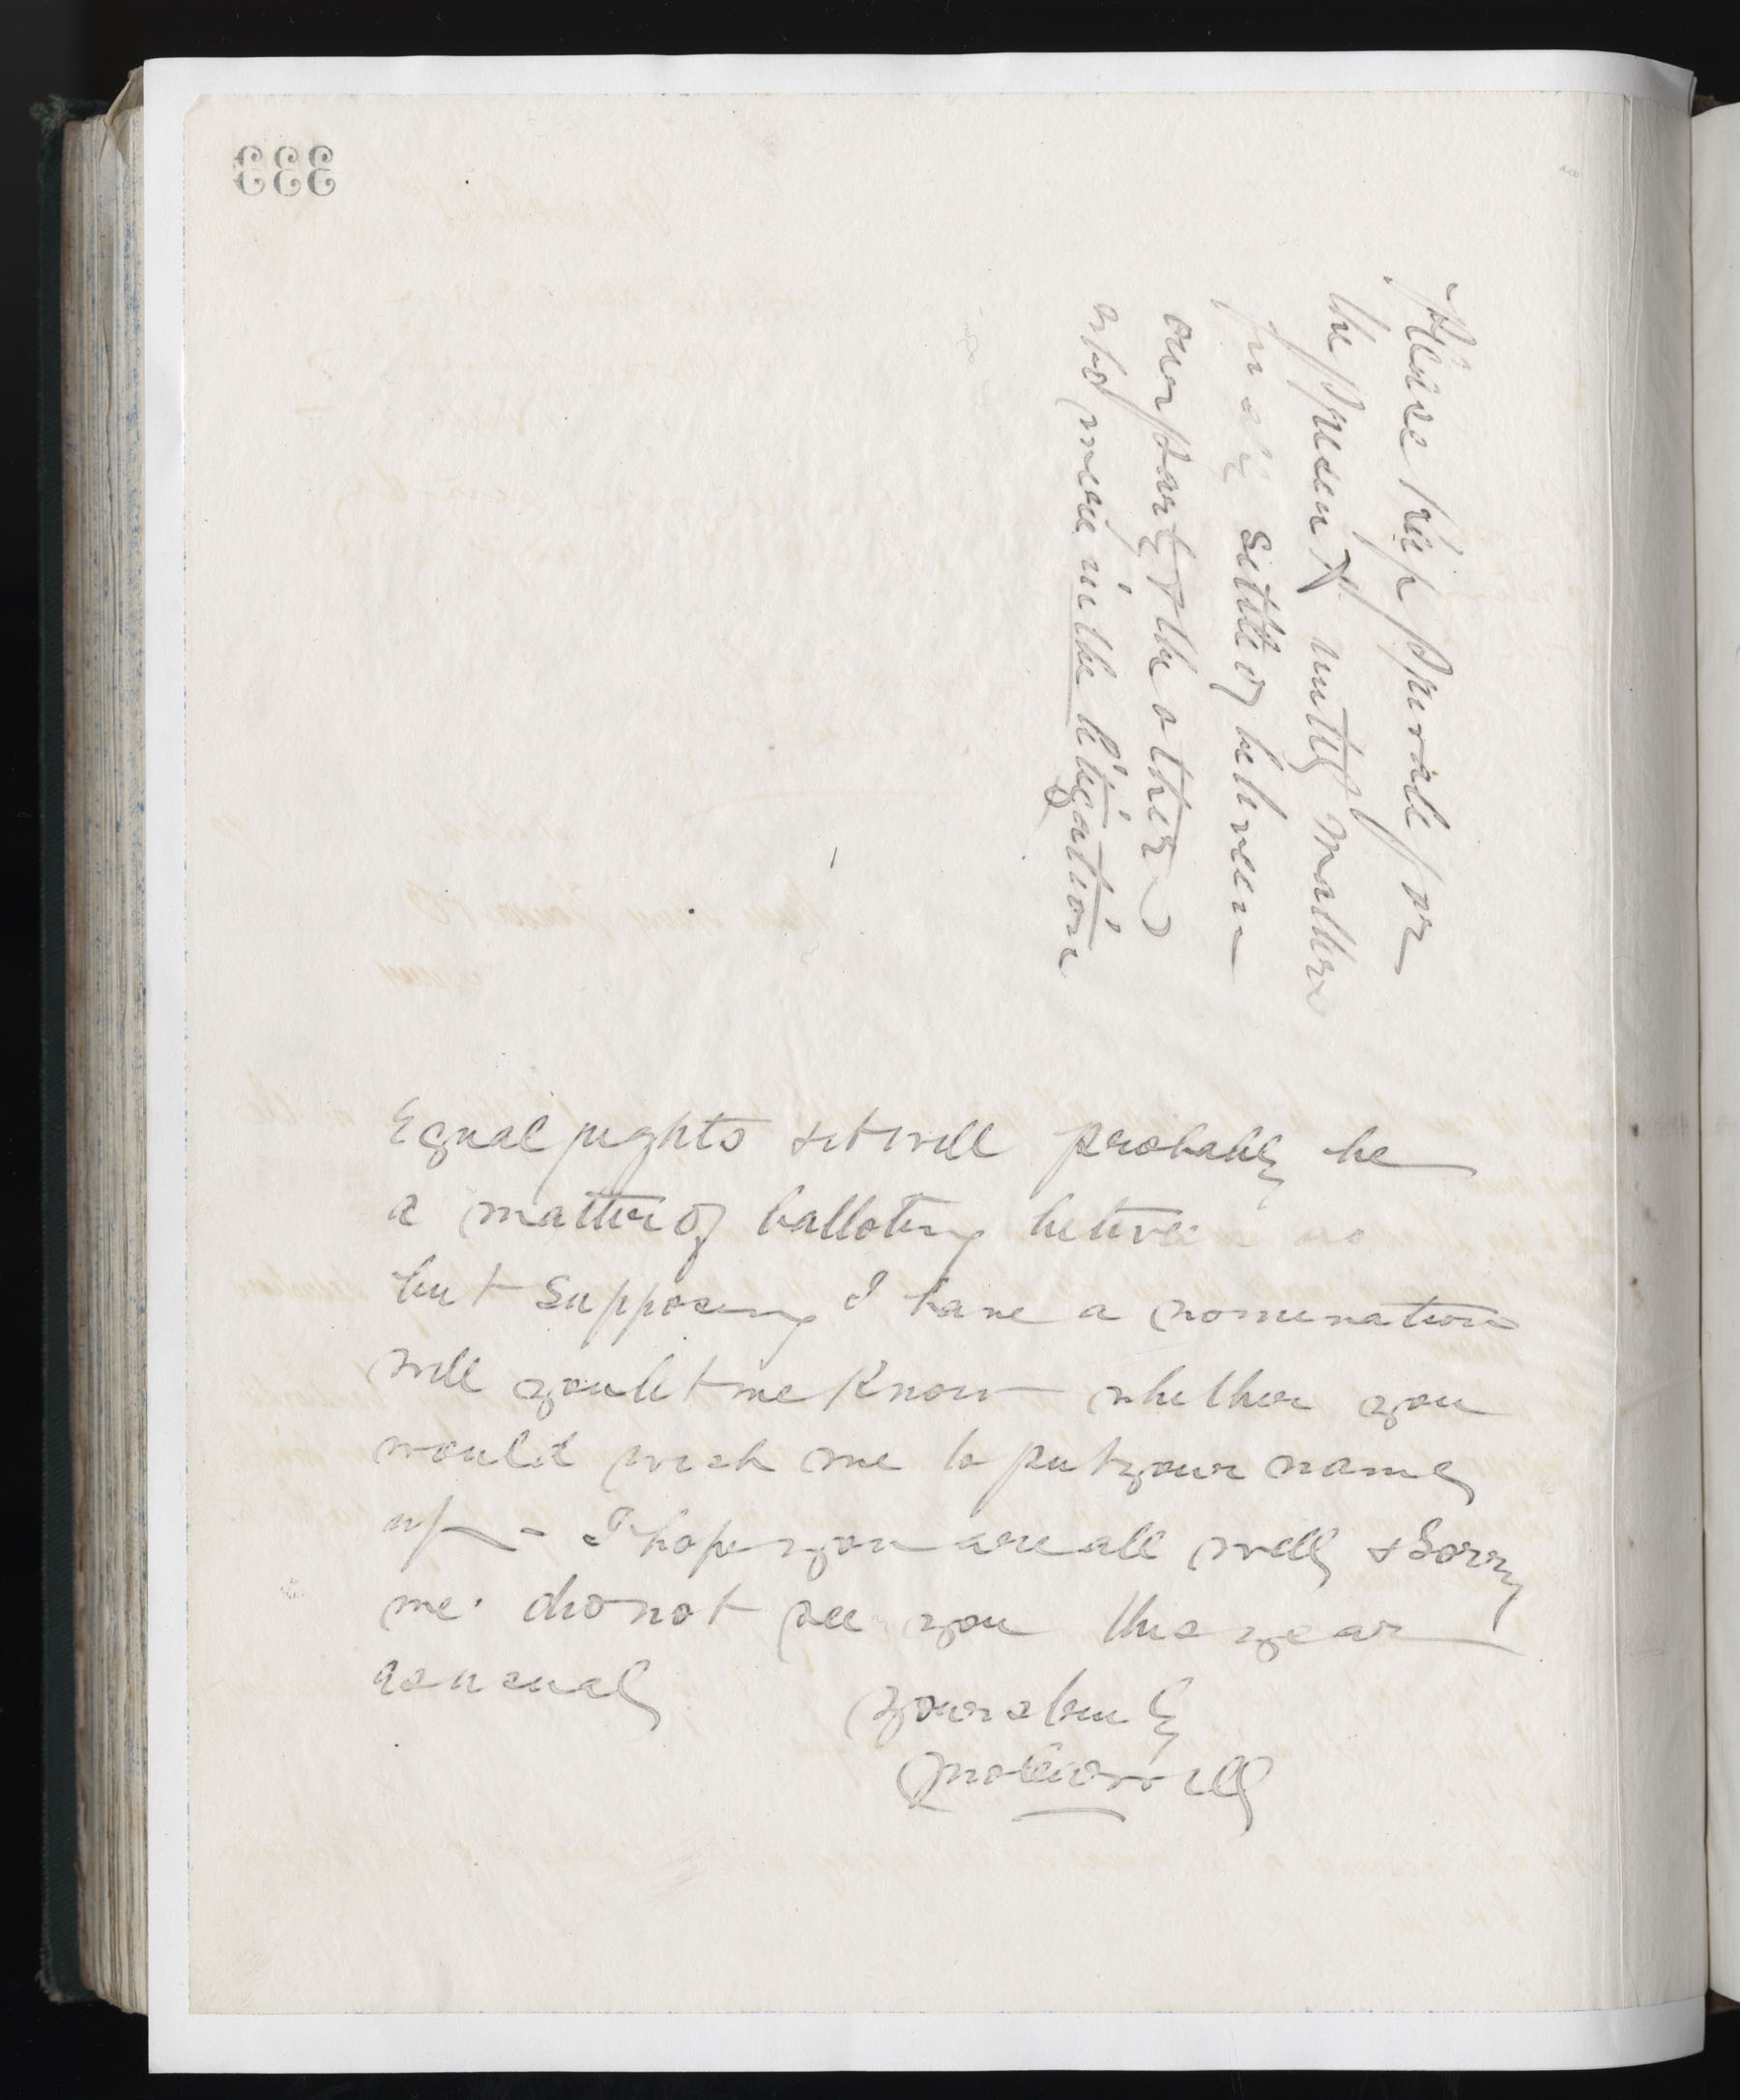 333
Please keep private for
the present until matters
finally settled between
our party & the other
who were in the litigation
Equal rights & it will probably be
a matter of balloting between us
but supposing I have a nomination
will you let me know whether you
would wish me to put your name
up - I hope you are all well & sorry
we did not see you this year
as usual
Yours truly